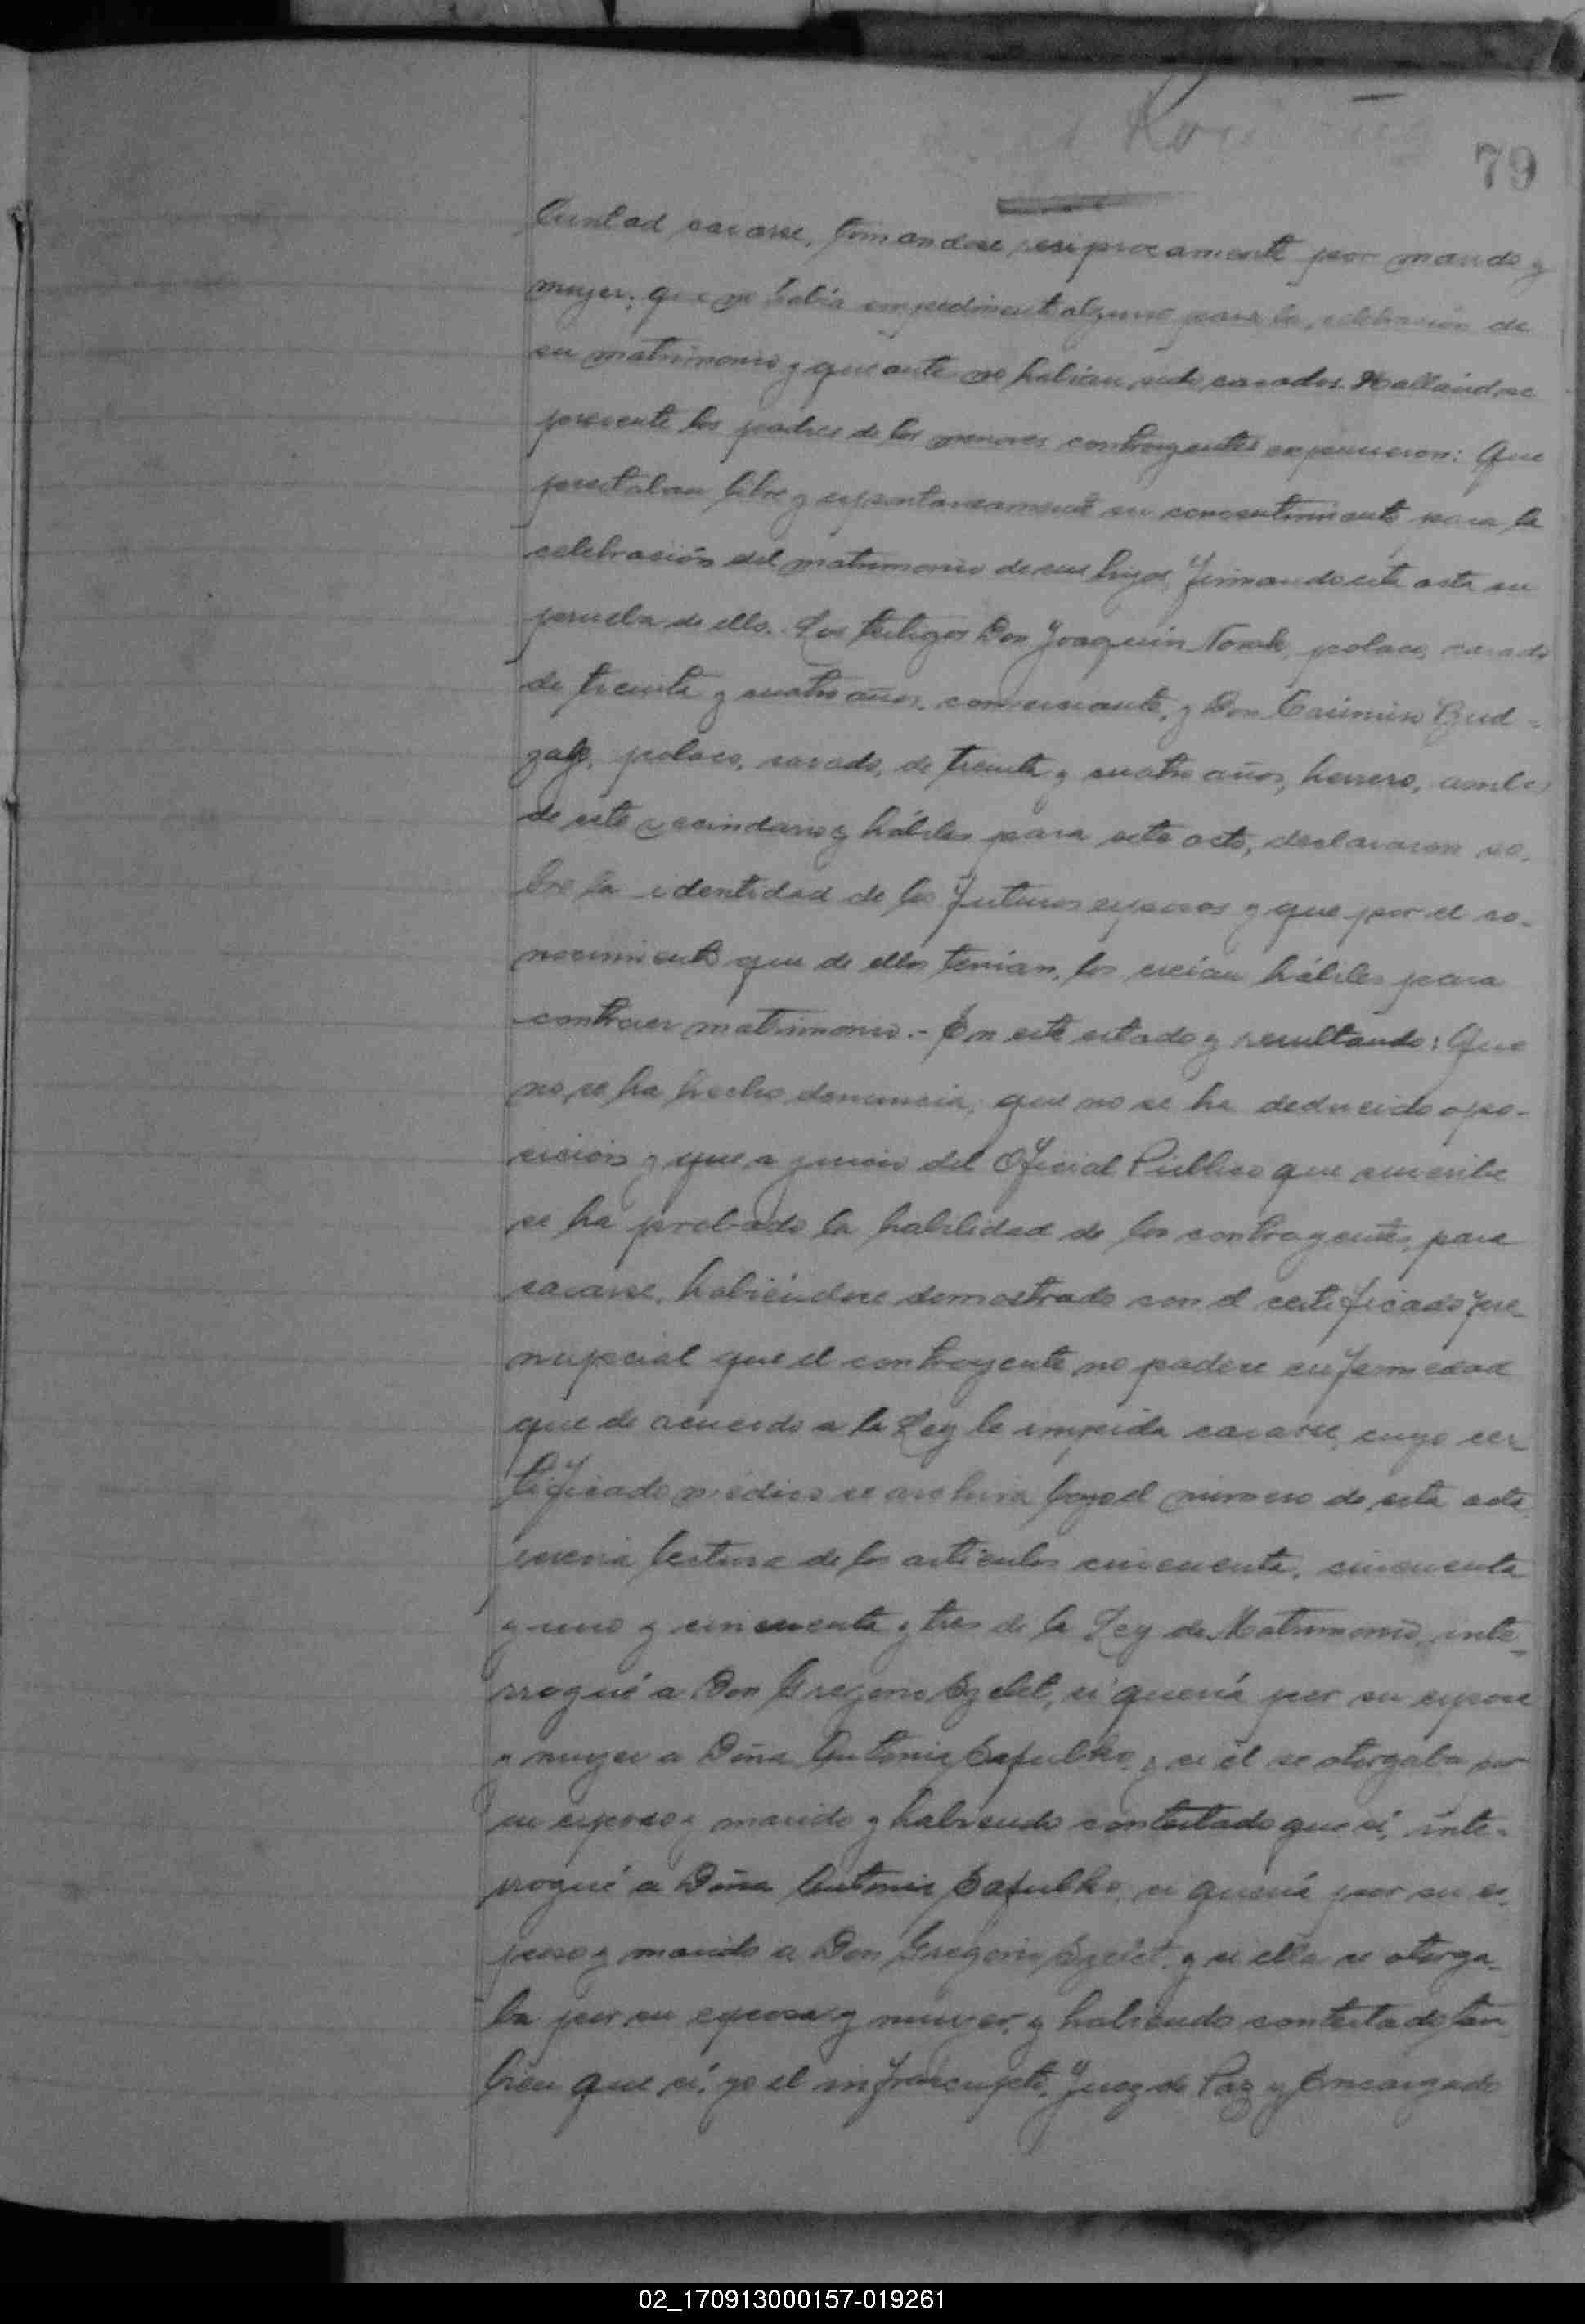 79
luntad casarse, tomandose reciprocamente por marido y
mujer; que no había impedimento alguno para la celebración de
su matrimonio y que antes no habían sido casados. Hallándose
presente los padres de los menores contrayentes expusieron: Que
prestaban libre y espontaneamente su consentimiento para la
celebración del matrimonio de sus hijos, firmando esta acta en
prueba de ello. Los testigos Don Joaquin Novak, polaco, casado
de treinta y cuatro años, comerciante, y Don Casimiro Bud-
zak, polaco, casado, de treinta y cuatro años, herrero, ambos
de este vecindario y hábiles para este acto, declararon so-
bre la identidad de los futuros esposos y que por el co-
nocimiento que de ellos tenian, los creian hábiles para
contraer matrimonio.- En este estado y resultando: Que
no se ha hecho denuncia, que no se ha deducido opo-
sición y que a juicio del Oficial Público que suscribe
se ha probado la habilidad de los contrayentes para
casarse, habiéndose demostrado con el certificado pre-
nupcial que el contrayente no padece enfermedad
que de acuerdo a la Ley le impida casarse, cuyo cer-
tificado médico se archiva bajo el número de esta acta
previa lectura de los artículos cincuenta, cincuenta
y uno y cincuenta y tres de la Ley de Matrimonio, inte-
rrogué a Don Gregorio Szelet, si quería por su esposa
y mujer a Doña Antonia Sapulko, y si él se otorgaba por
su esposo y marido y habiendo contestado que sí, inte-
rrogué a Doña Antonia Sapulko, si quería por su es-
poso y marido a Don Gregorio Szelet, y si ella se otorga-
ba por su esposa y mujer, y habiendo contestado tam
bien que sí, yo el infrascripto, Juez de Paz y Encargado
02_170913000157-019261